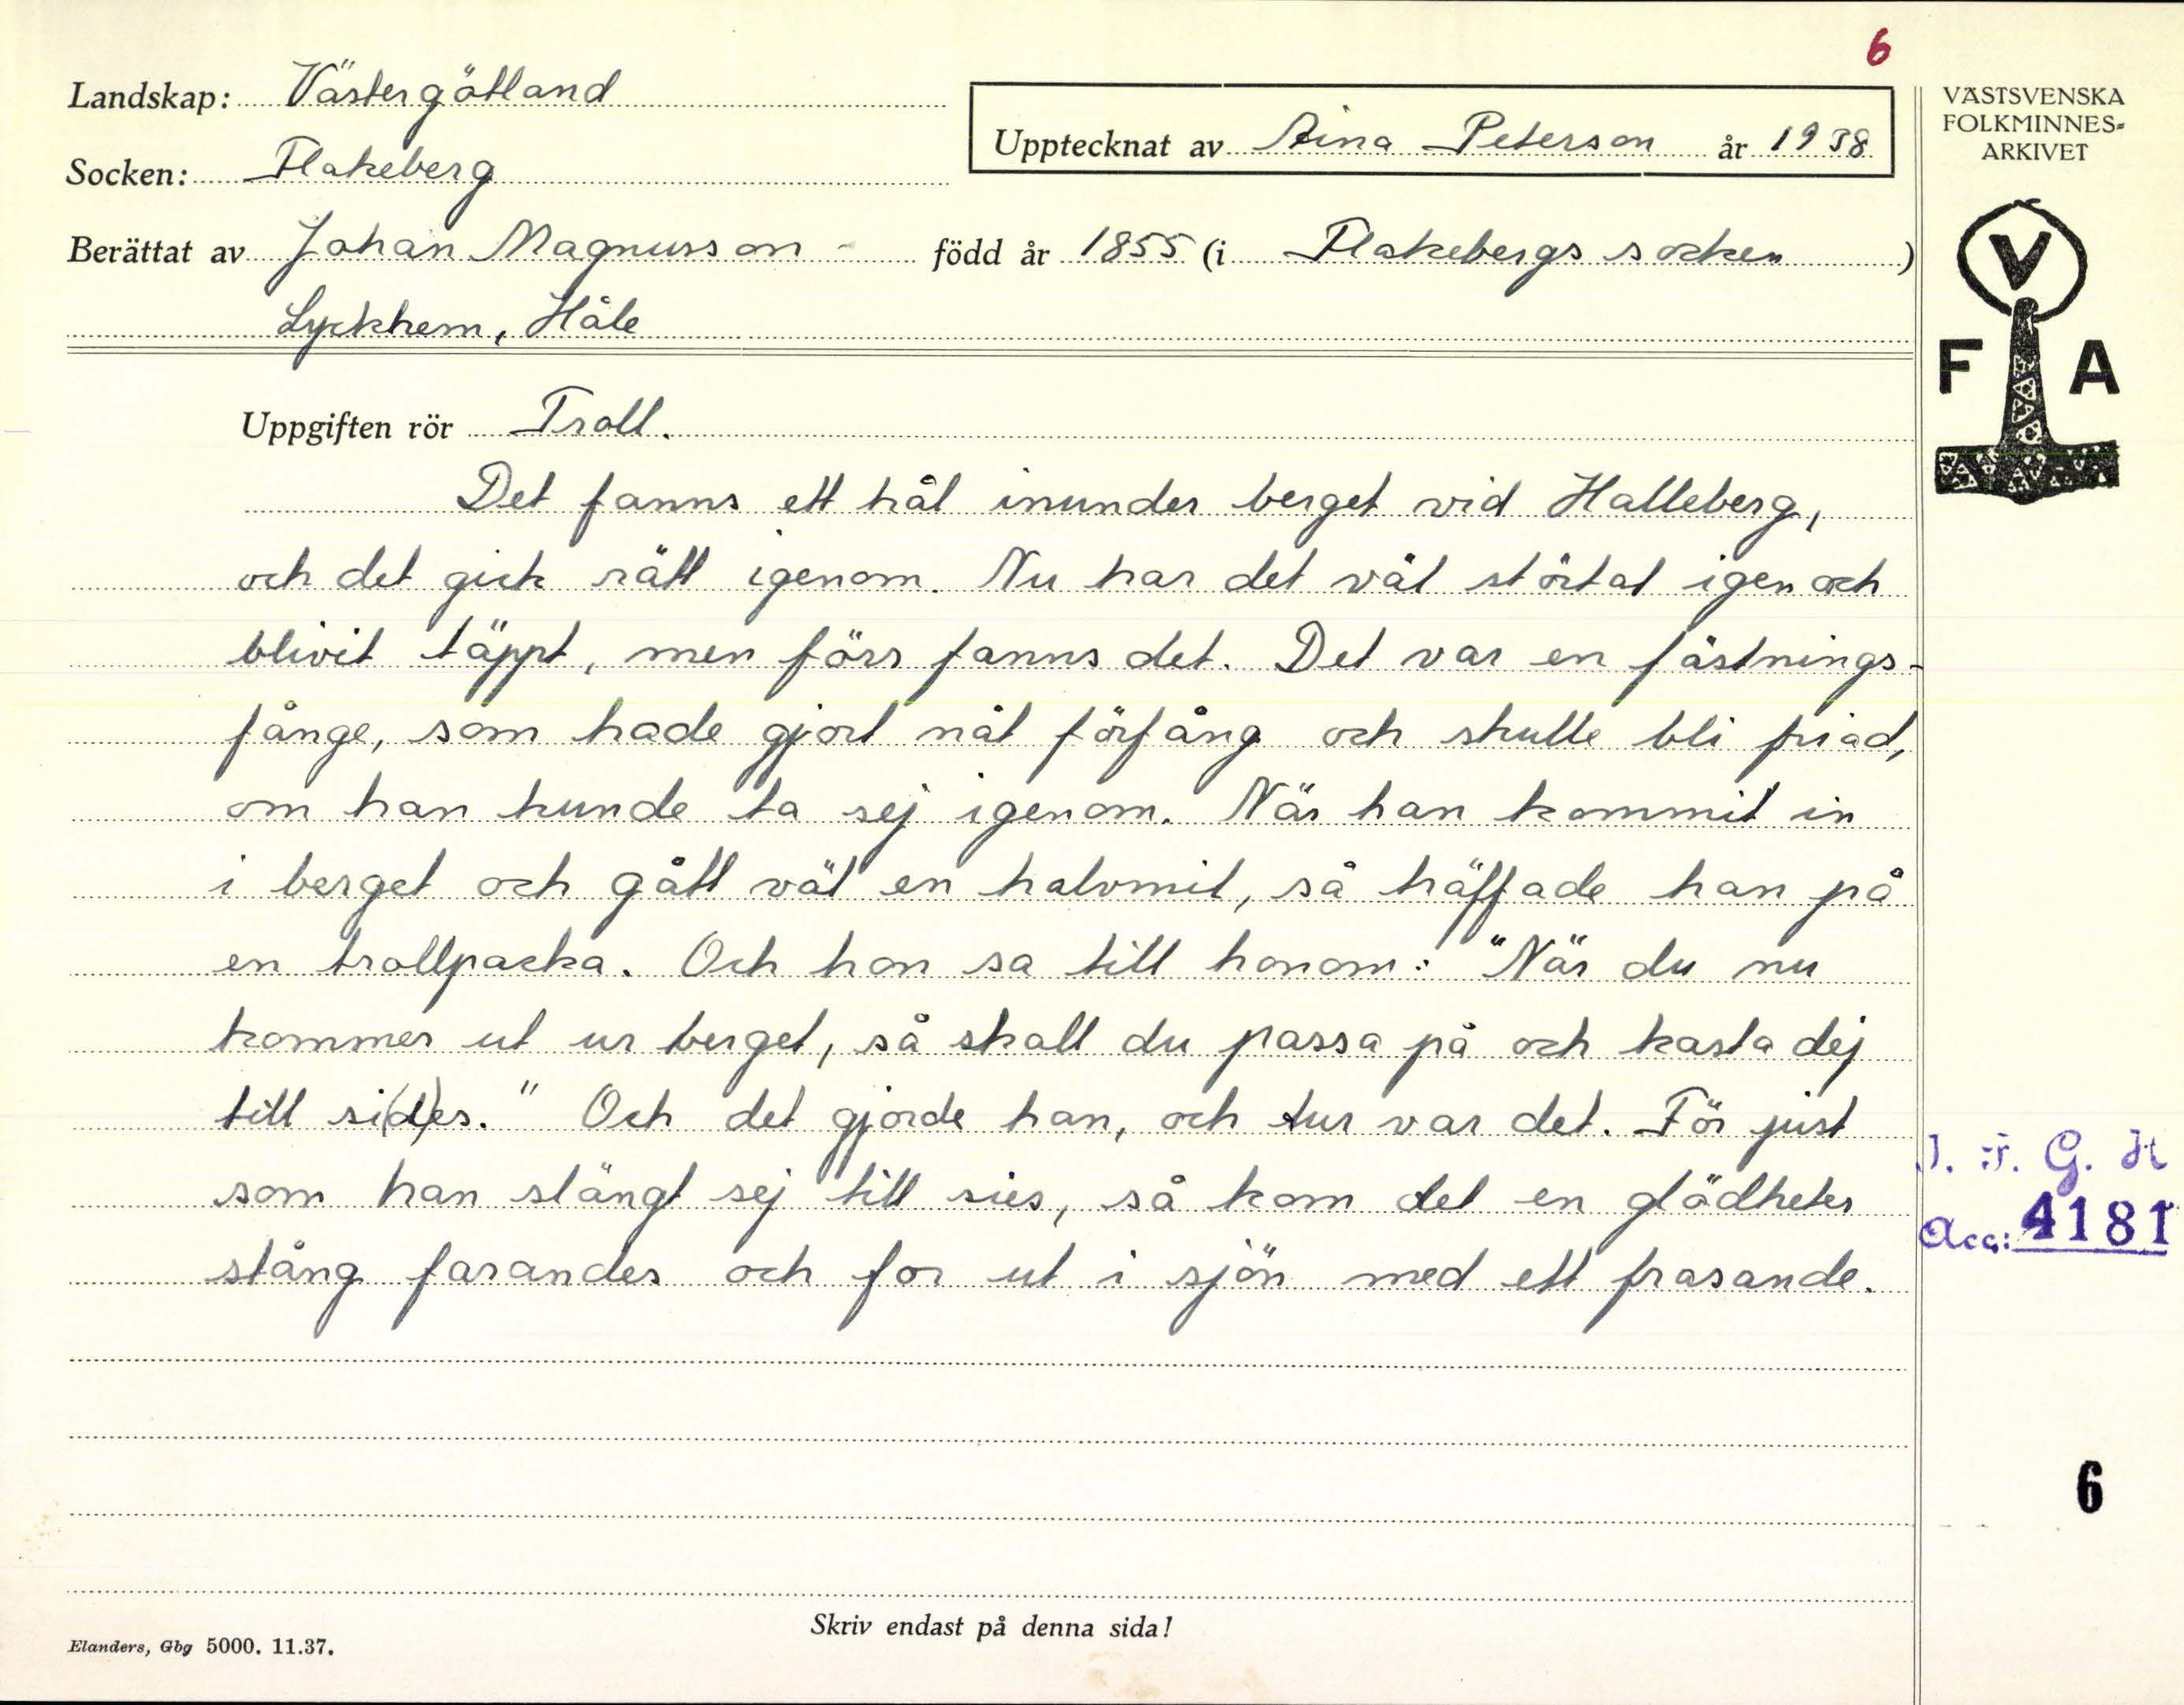 6
Landskap: Västergötland
Socken: Flakeberg
Upptecknat av Aina Peterson år 1938
Berättat av Johan Magnusson - född år 1855 (i Flakebergs socken)
Lyckhem, Håle
VÄSTSVENSKA
FOLKMINNES-
ARKIVET
V
F A
Uppgiften rör Troll.
Det fanns ett hål inunder berget vid Halleberg,
och det gick rätt igenom. Nu har det väl störtat igen och
blivit täppt, men förr fanns det. Det var en fästnings-
fånge, som hade gjort nåt förfång och skulle bli friad,
om han kunde ta sej igenom. När han kommit in
i berget och gått väl en halvmil, så träffade han på
en trollpacka. Och hon sa till honom: "När du nu
kommer ut ur berget, så skall du passa på och kasta dej
till si(d)es." Och det gjorde han, och tur var det. För just
som han slängt sej till sies, så kom det en glödheter
stång farandes och for ut i sjön med ett frasande.
I. F. G. H
Acc: 4181
6
Skriv endast på denna sida!
Elanders, Gbg 5000. 11.37.